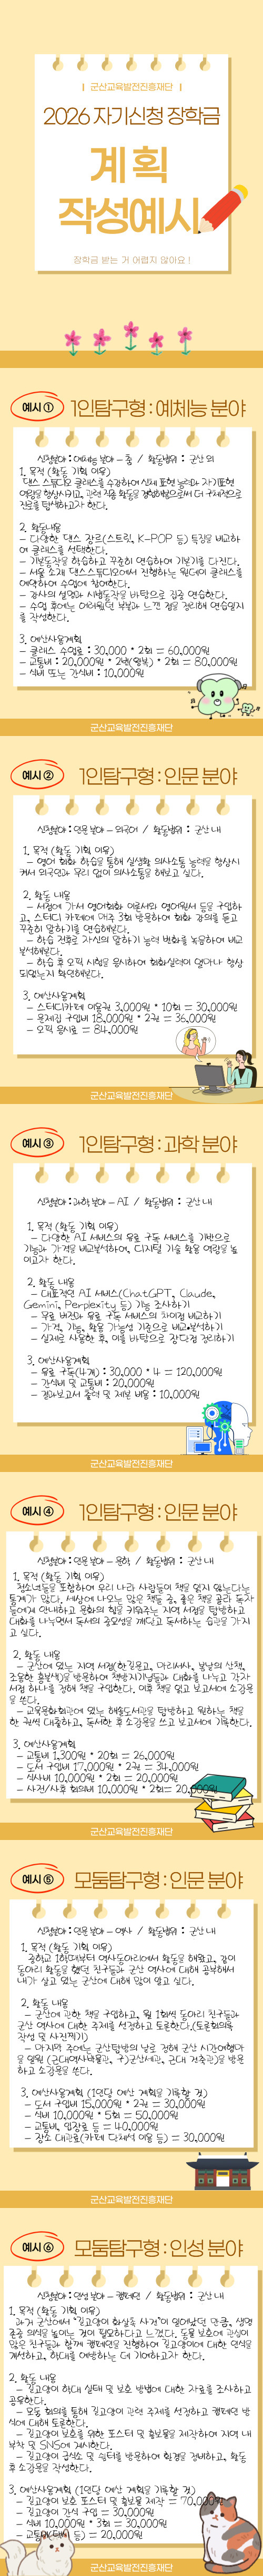 | 군산교육발전진흥재단 |
2026 자기신청 장학금
계획
작성예시
장학금 받는 거 어렵지 않아요 !
예시 ①
1인탐구형 : 예체능 분야
신청분야 : 예체능 분야 – 춤 / 활동범위 : 군산 외
1. 목적 (활동 기획 이유)
댄스 스튜디오 클래스를 수강하여 신체 표현 능력과 자기표현
역량을 향상시키고, 관련 직업 활동을 경험해봄으로써 더 구체적으로
진로를 탐색하고자 한다.
2. 활동내용
– 다양한 댄스 장르(스트릿, K-POP 등) 특징을 비교하
여 클래스를 선택한다.
– 기본동작을 학습하고 꾸준히 연습하여 기본기를 다진다.
– 서울 소재 댄스스튜디오에서 진행하는 원데이 클래스를
예약하여 수업에 참여한다.
– 강사의 설명과 시범동작을 바탕으로 집중 연습한다.
– 수업 후에는 어려웠던 부분과 느낀 점을 정리해 연습일지
를 작성한다.
3. 예산사용계획
– 클래스 수업료 : 30,000 * 2회 = 60,000원
– 교통비 : 20,000원 * 2회(왕복) * 2회 = 80,000원
– 식비 또는 간식비 : 10,000원
군산교육발전진흥재단
예시 ②
1인탐구형 : 인문 분야
신청분야 : 인문 분야 – 외국어 / 활동범위 : 군산 내
1. 목적 (활동 기획 이유)
– 영어 회화 학습을 통해 실생활 의사소통 능력을 향상시
켜서 외국인과 무리 없이 의사소통을 해보고 싶다.
2. 활동 내용
– 서점에 가서 영어회화 이론서와 영어원서 등을 구입하
고, 스터디 카페에 매주 3회 방문하여 회화 강의를 듣고
꾸준히 말하기를 연습해본다.
– 학습 전후로 자신의 말하기 능력 변화를 녹음하여 비교
분석해본다.
– 학습 후 오픽 시험을 응시하여 회화실력이 얼마나 향상
되었는지 확인해본다.
3. 예산사용계획
– 스터디카페 이용권 3,000원 * 10회 = 30,000원
– 문제집 구입비 18,000원 * 2권 = 36,000원
– 오픽 응시료 = 84,000원
군산교육발전진흥재단
예시 ③
1인탐구형 : 과학 분야
신청분야 : 과학 분야 – AI / 활동범위 : 군산 내
1. 목적 (활동 기획 이유)
– 다양한 AI 서비스의 유료 구독 서비스를 기반으로
기능과 가격을 비교분석하여, 디지털 기술 활용 역량을 높
이고자 한다.
2. 활동 내용
– 대표적인 AI 서비스(ChatGPT, Claude,
Gemini, Perplexity 등) 기능 조사하기
– 무료 버전과 유료 구독 서비스의 차이점 비교하기
– 가격, 기능, 활용 가능성 기준으로 비교•분석하기
– 실제로 사용한 후, 이를 바탕으로 장단점 정리하기
3. 예산사용계획
– 유료 구독(4개) : 30,000 * 4 = 120,000원
– 간식비 및 교통비 : 20,000원
– 결과보고서 출력 및 제본 비용 : 10,000원
군산교육발전진흥재단
예시 ④
1인탐구형 : 인문 분야
신청분야 : 인문 분야 – 문학 / 활동범위 : 군산 내
1. 목적 (활동 기획 이유)
청소년들을 포함하여 우리 나라 사람들이 책을 읽지 않는다는
통계가 많다. 세상에 나오는 많은 책들 중, 좋은 책을 골라 독자
들에게 안내하고 문화의 힘을 키워주는 지역 서점을 탐방하고
대화를 나누면서 독서의 중요성을 깨닫고 독서하는 습관을 가지
고 싶다.
2. 활동 내용
– 군산에 있는 지역 서점(한길문고, 마리서사, 봄날의 산책,
조용한 흥분색)을 방문하여 책방지기님들과 대화를 나누고 각자
서점 하나를 정해 책을 구입한다. 이후 책을 읽고 보고서에 소감문
을 쓴다.
– 교육문화회관에 있는 해솔도서관을 탐방하고 원하는 책을
한 권씩 대출하고, 독서한 후 소감문을 쓰고 보고서에 기록한다.
3. 예산사용계획
– 교통비 1,300원 * 20회 = 26,000원
– 도서 구입비 17,000원 * 2권 = 34,000원
– 식사비 10,000원 * 2회 = 20,000원
– 사전/사후 회의비 10,000원 * 2회= 20,000원
군산교육발전진흥재단
예시 ⑤
모둠탐구형 : 인문 분야
신청분야 : 인문 분야 – 역사 / 활동범위 : 군산 내
1. 목적 (활동 기획 이유)
중학교 1학년부터 역사동아리에서 활동을 해왔고, 같이
동아리 활동을 했던 친구들과 군산 역사에 대해 공부해서
내가 살고 있는 군산에 대해 많이 알고 싶다.
2. 활동 내용
– 군산에 관한 책을 구입하고, 월 1회씩 동아리 친구들과
군산 역사에 대한 주제를 선정하고 토론한다.(토론회의록
작성 및 사진찍기)
– 마지막 주에는 군산탐방의 날로 정해 군산 시간여행마
을 일원 (근대역사박물관, 구)군산세관, 근대 건축관)을 방문
하고 소감문을 쓴다.
3. 예산사용계획 (1인당 예산 계획을 기록할 것)
– 도서 구입비 15,000원 * 2권 = 30,000원
– 식비 10,000원 * 5회 = 50,000원
– 교통비, 입장료 등 = 40,000원
– 장소 대관료(카페 단체석 이용 등) = 30,000원
군산교육발전진흥재단
예시 ⑥
모둠탐구형 : 인성 분야
신청분야 : 인성 분야 – 캠페인 / 활동범위 : 군산 내
1. 목적 (활동 기획 이유)
과거 군산에서 "길고양이 화살촉 사건"이 일어났던 만큼, 생명
존중 의식을 높이는 것이 필요하다고 느꼈다. 동물 보호에 관심이
많은 친구들과 함께 캠페인을 진행하여 길고양이에 대한 인식을
개선하고, 학대를 예방하는 데 기여하고자 한다.
2. 활동 내용
– 길고양이 학대 실태 및 보호 방법에 대한 자료를 조사하고
공유한다.
– 모둠 회의를 통해 길고양이 관련 주제를 선정하고 캠페인 방
식에 대해 토론한다.
– 길고양이 보호를 위한 포스터 및 홍보물을 제작하여 지역 내
부착 및 SNS에 게시한다.
– 길고양이 급식소 및 쉼터를 방문하여 환경을 정비하고, 활동
후 소감문을 작성한다.
3. 예산사용계획 (1인당 예산 계획을 기록할 것)
– 길고양이 보호 포스터 및 홍보물 제작 = 70,000원
– 길고양이 간식 구입 = 30,000원
– 식비 10,000원 * 3회 = 30,000원
– 교통비(택시 등) = 20,000원
군산교육발전진흥재단